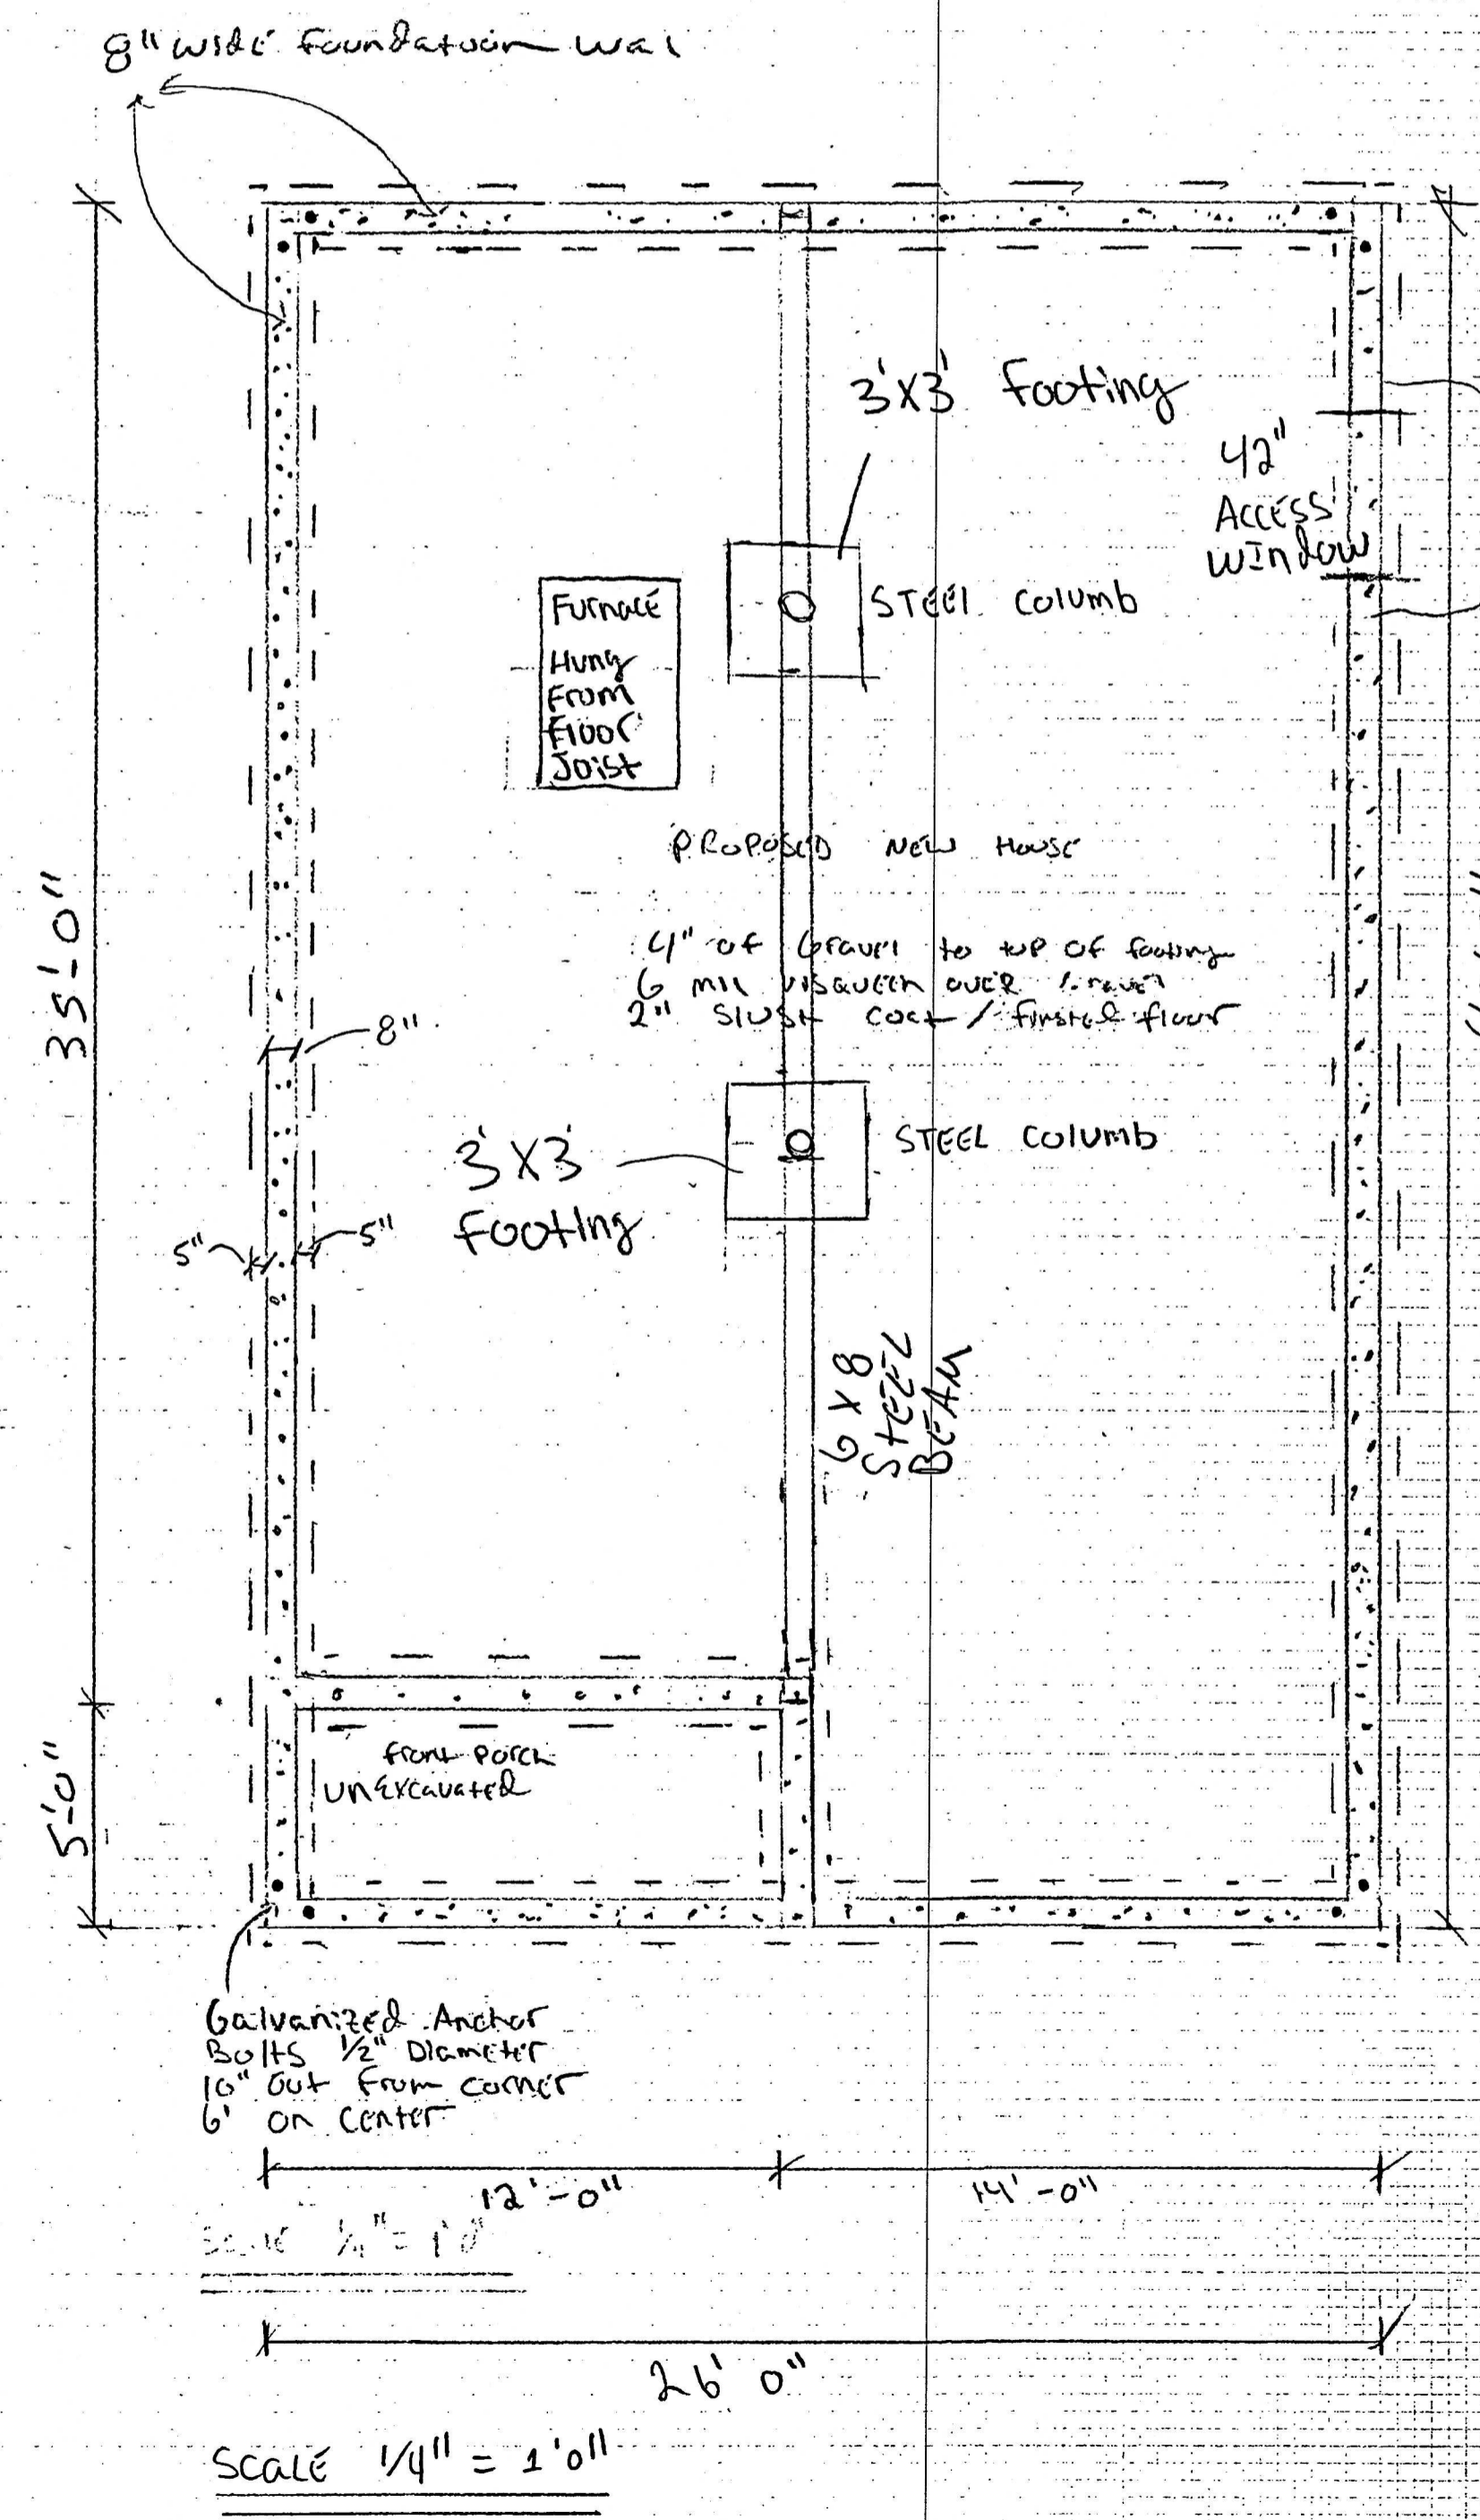 8" WIDE Foundatuon Wal
3'X3' Footing
42"
ACCESS
WINdOW
STEEL Columb
Furnace
Hung
From
Floor
Joist
PROPOSED NEW HOUSE
4" of Gravel to top of footing
6 mil VISQUEEN OVER
2" Slush Coat / floor
35'-0"
8"
STEEL Columb
3'X3'
Footing
5"
5"
6 X 8
STEEL
BEAM
front Porch
UNExcavated
5'-0"
Galvanized Anchor
Bolts 1/2" Diameter
10" Out From corner
6' on Center
12'-0"
14'-0"
Scale 1/4" = 1'0"
26' 0"
SCALE 1/4" = 1'0"